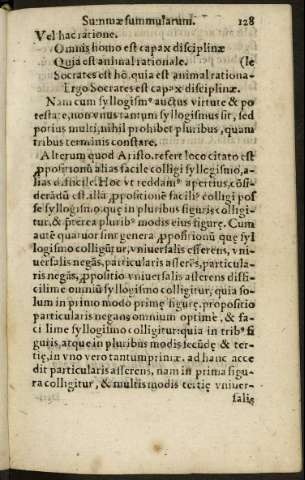 Summæ summularum. 128
Vel hac ratione.
Omnis homo est capax disciplinæ
Quia est animal rationale. (le
Socrates est hõ, quia est animal rationa-
Ergo Socrates est capax disciplinæ.
Nam cum syllogism⁹ auctus virtute & po
testate, non vnus tantum syllogismus sit, sed
potius multi, nihil prohibet pluribus, quam
tribus terminis constare.
Alterum quod Aristo. refert loco citato est
ꝓpositionũ alias facile colligi syllegismo, a-
lias difficile. Hoc vt reddam⁹ apertius, cõsi-
derãdũ est. illã ꝓpositionẽ facili⁹ colligi pos
se syllogismo, quę in pluribus figuris colligi-
tur, & pręterea plurib⁹ modis eius figurę. Cum
autẽ quatuor sint genera ꝓpositionũ quę syl
logismo colligũtur, vniuersalis asserens, vni-
uersalis negãs, particularis asserẽs, particula-
ris negãs, ꝓpositio vniuersalis asserens diffi-
cilime omniũ syllogismo colligitur, quia so-
lum in primo modo primę figurę. propositio
particularis negans omnium optimè, & fa-
cilime syllogismo colligitur: quia in trib⁹ fi
guris, atque in pluribus modis secũdę & ter-
tię, in vno vero tantum primæ. ad hanc acce
dit particularis asserens, nam in prima figu-
ra colligitur, & multis modis tertię vniuer-
salis